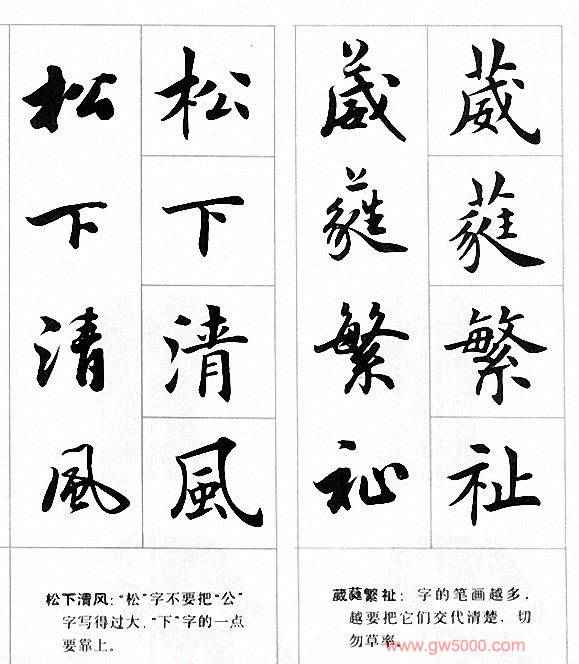 松下清風
松下清風
葳蕤繁祉
葳蕤繁祉
松下清风:“松”字不要把“公”
字写得过大,“下”字的一点
要靠上。
葳蕤繁祉: 字的笔画越多,
越要把它们交代清楚, 切
勿草率。
www.gw5000.com